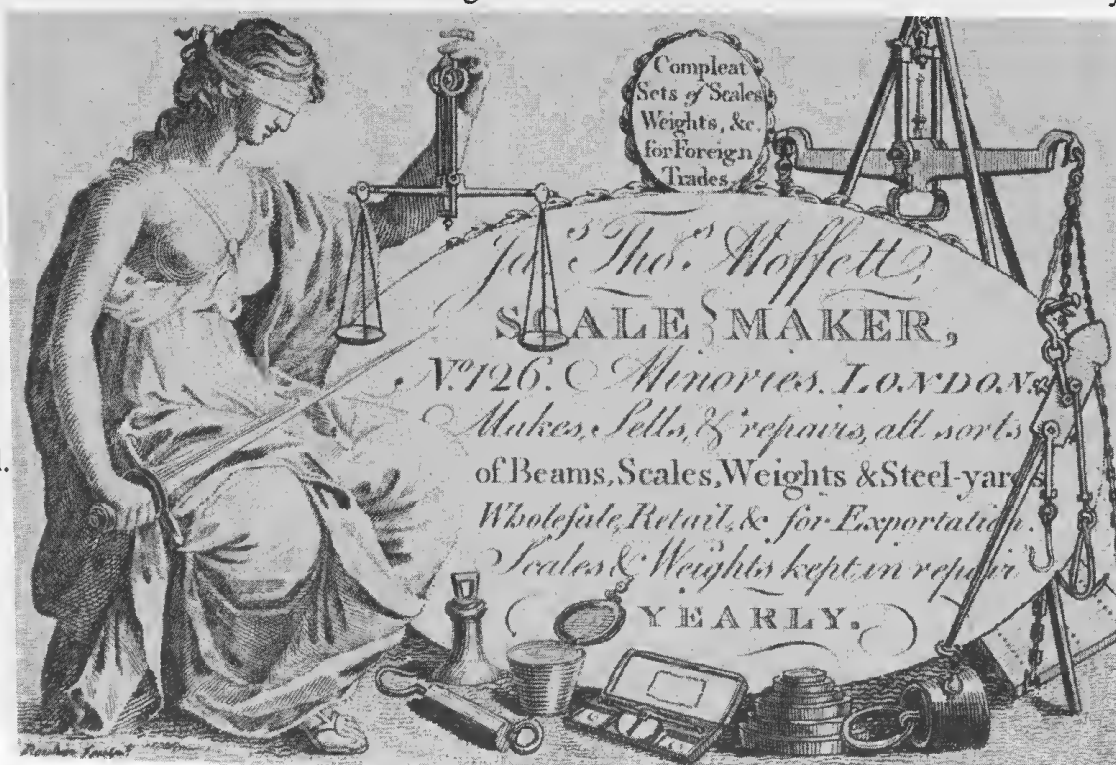 Compleat
Sets of Scales
Weights, &c.
for Foreign
Trades
Jas. Thos. Moffett,
SCALE MAKER,
No. 126. Minories, LONDON.
Makes, Sells, & repairs, all sorts
of Beams, Scales, Weights & Steel-yards
Wholesale, Retail, & for Exportation.
Scales & Weights kept in repair
YEARLY.